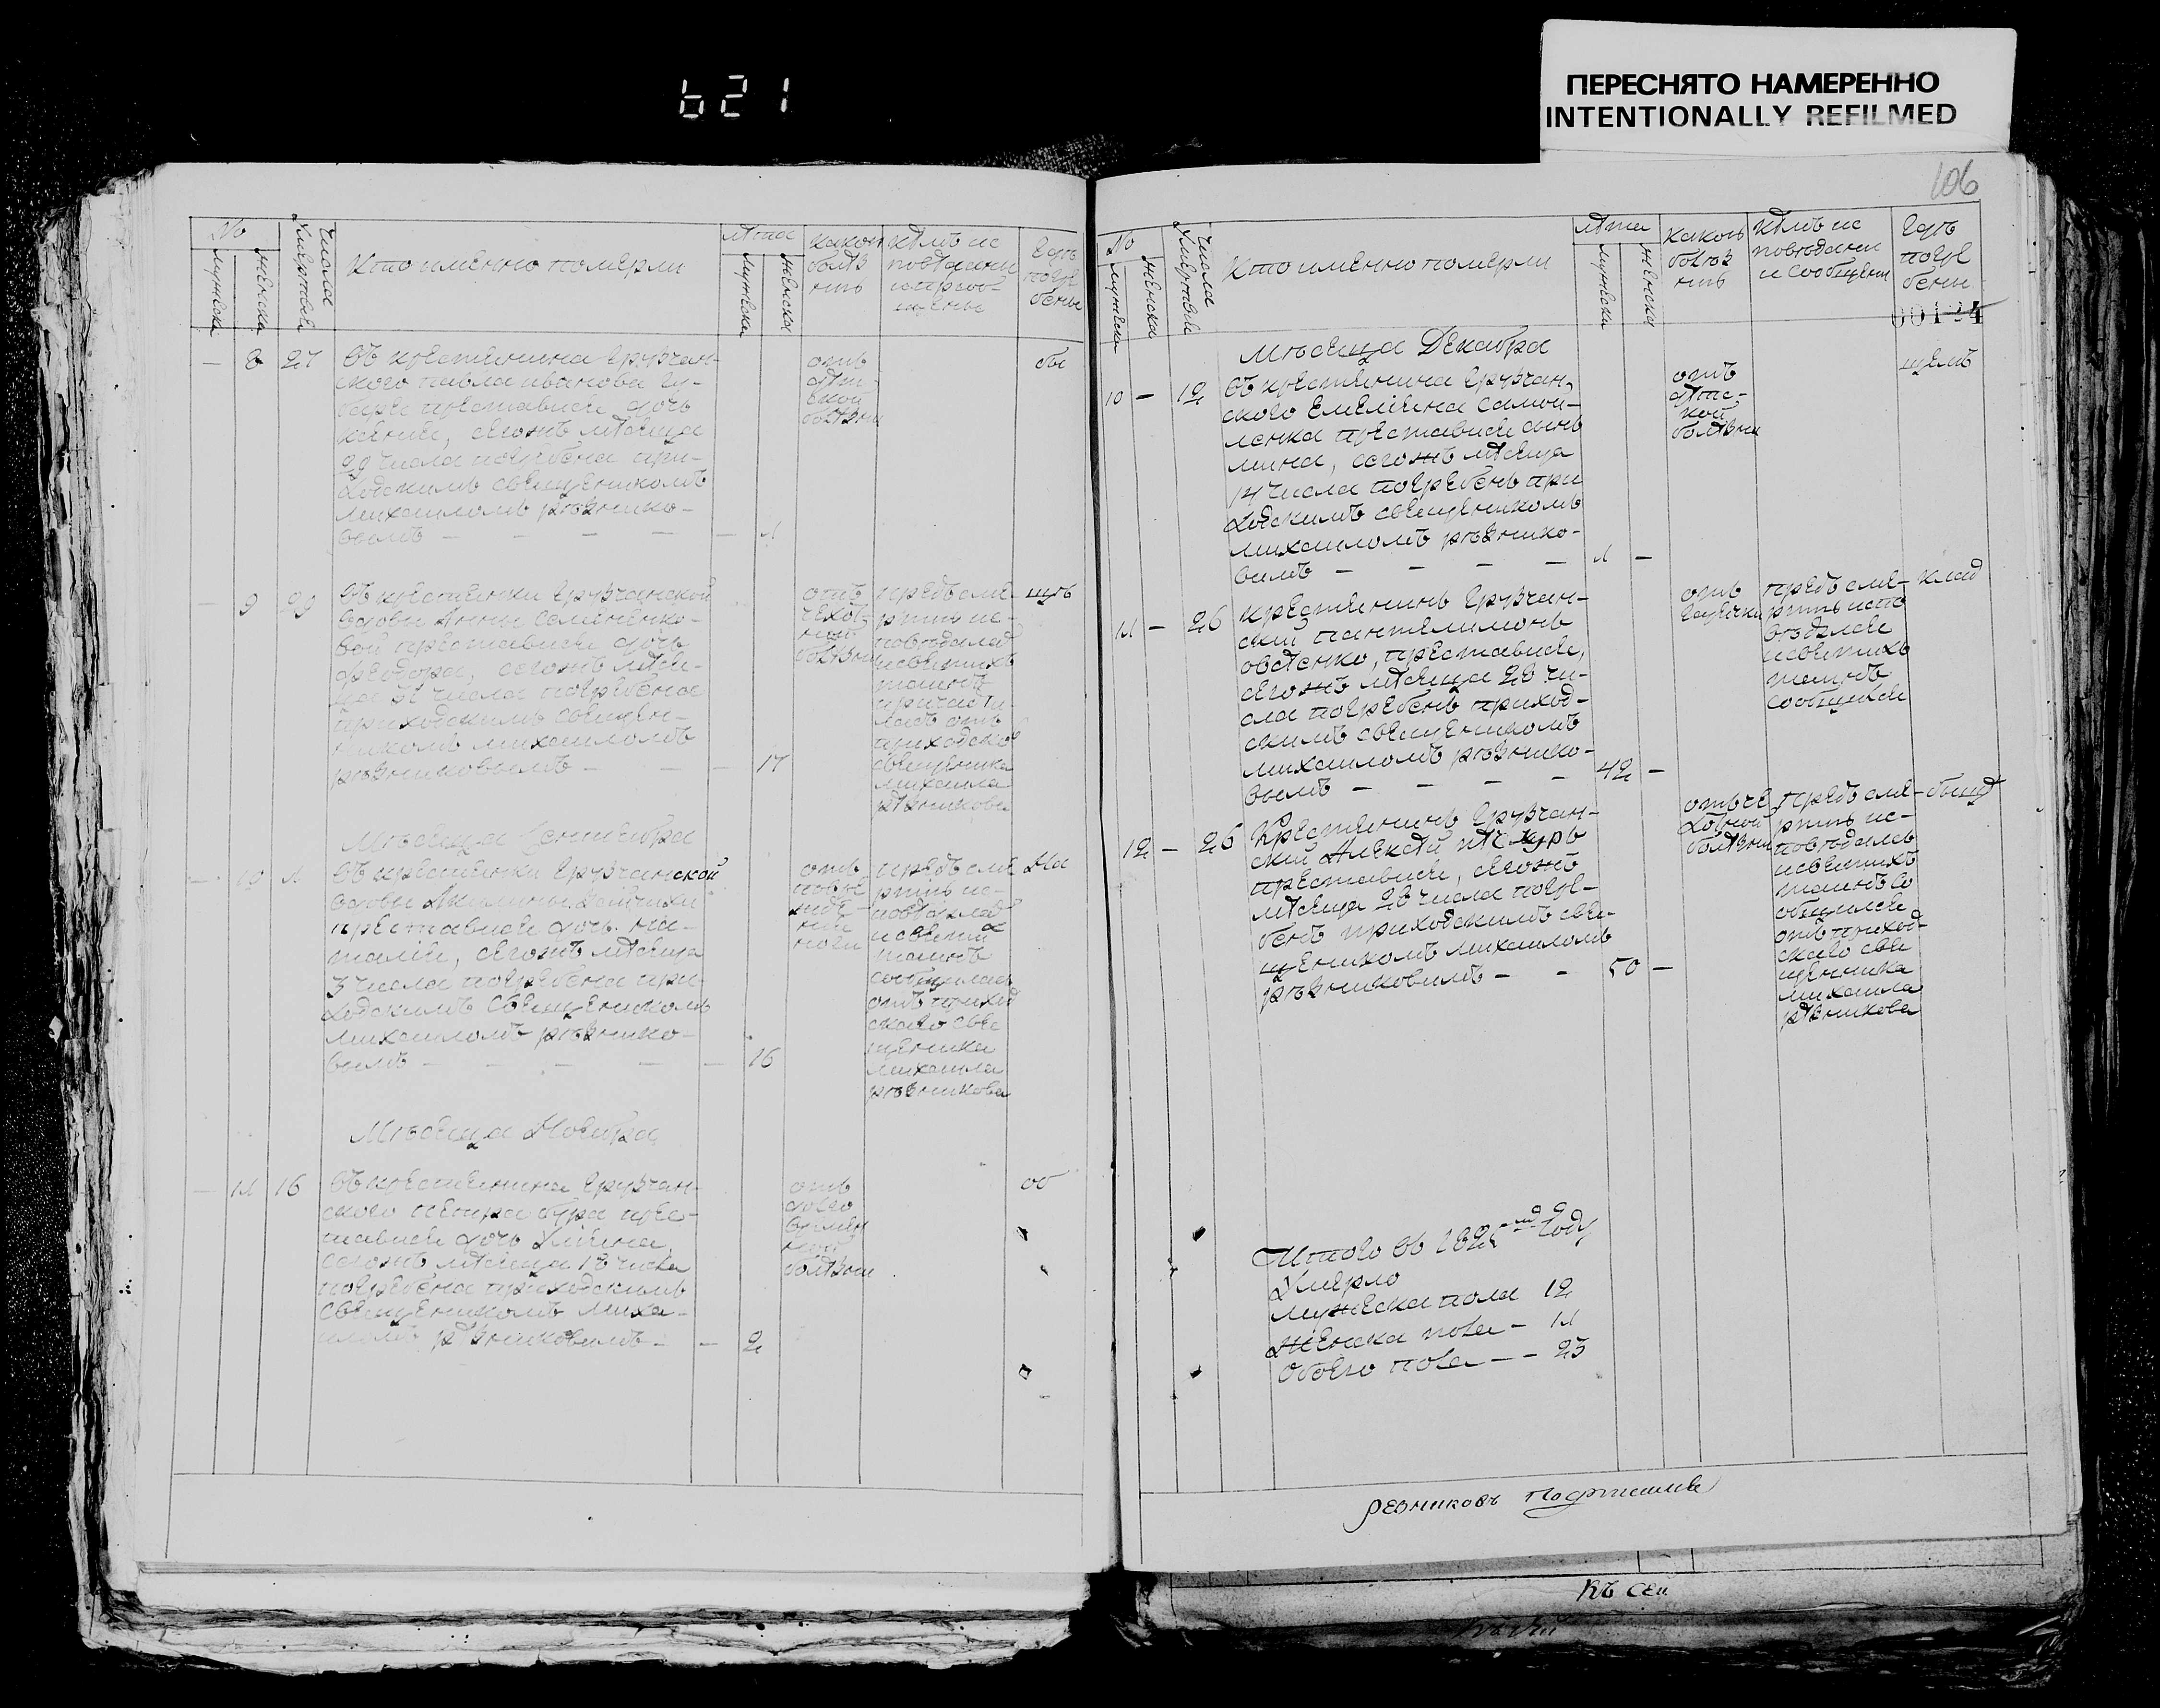 621
ПЕРЕСНЯТО НАМЕРЕННО
INTENTIONALLY REFILMED
№
мужеска
женска
Числа
Умертвия
Кто именно померли
лѣта
мужеска
женска
какою
болѣз
нию
Кѣмъ ис
повѣданы
Гдѣ
погре
бены
8 27
въ крестянина Грузчан-
ского павла иванова
преставися дочь
сегожъ мѣсяца
29 числа погребена при-
ходскимъ священикомъ
михаиломъ рѣзнико-
вымъ — — — — — 1
отъ
дѣт
ской
болѣзни
9 29
въ крестянки Грузчанской
вдовы Анны
преставися дочь
сегожъ мѣся-
ца 31 числа погребена
приходскимъ священ-
никомъ михаиломъ
рѣзниковымъ — — — 17
отъ
чехот
ной
болѣзни
предъ сме
ртию ис-
повѣдалас
и святихъ
таинъ
причасти-
лась отъ
приходског
священика
михаила
рѣзникова
10 1
въ крестянки Грузчанской
вдовы
преставися дочь На-
талия, сегожъ мѣсяца
3 числа погребена при-
ходскимъ священикомъ
михаиломъ рѣзнико-
вымъ — — — — — 16
отъ
предъ сме
ртию ис-
повѣдалас
и святих
таинъ
сообщилась
отъ приход
скаго свя
щеника
михаила
рѣзникова
На
Мѣсяца Ноября
11 16
въ крестянина Грузчан-
ского петра бура прес-
тавися дочь
сегожъ мѣсяца 18 числа
погребена приходскимъ
священикомъ миха-
иломъ рѣзниковимъ — — 2
отъ
болѣзни
об
106
№
мужеска
женска
Числа
Умертвия
Кто именно померли
лѣта
мужеска
женска
какою
болѣз
нию
Кѣмъ ис
повѣдани
и сообщени
Гдѣ
погре
бени
00124
Мѣсяца Декабра
10 — 12
въ крестянина Грузчан-
ского Емелияна самой-
ленка преставися синъ
мина, сегожъ мѣсяца
14 числа погребенъ при
ходскимъ священикомъ
михаиломъ рѣзнико-
вимъ — — — — 1 —
отъ
дѣтс-
кой
болѣзни
щемъ
11 — 26
крестянинъ Грузчан-
ский пантелимонъ
овсѣенко, преставися,
сегожъ мѣсяца 28 чи-
сла погребенъ приход-
скимъ священикомъ
михаиломъ рѣзнико-
вымъ — — — — 42 —
отъ
горячки
предъ сме-
ртию испо
вѣдался
и святихъ
таинъ
сообщился
клад
12 — 26
Крестянинъ Грузчан-
ский Алексѣй
преставися, сегожъ
мѣсяца 28 числа погре-
бенъ приходскимъ свя-
щеникомъ михаиломъ
рѣзниковимъ — — 50 —
отъ че
хотной
болѣзни
предъ сме-
ртию ис-
повѣдалсь
и святихъ
таинъ со
общился
отъ приход-
скаго свя
щенника
михаила
рѣзникова
бищѣ
Итого въ 1825 году
Умерло
мужеска пола 12
женска пола — 11
Обоего пола — — 23
резниковъ
Къ сей